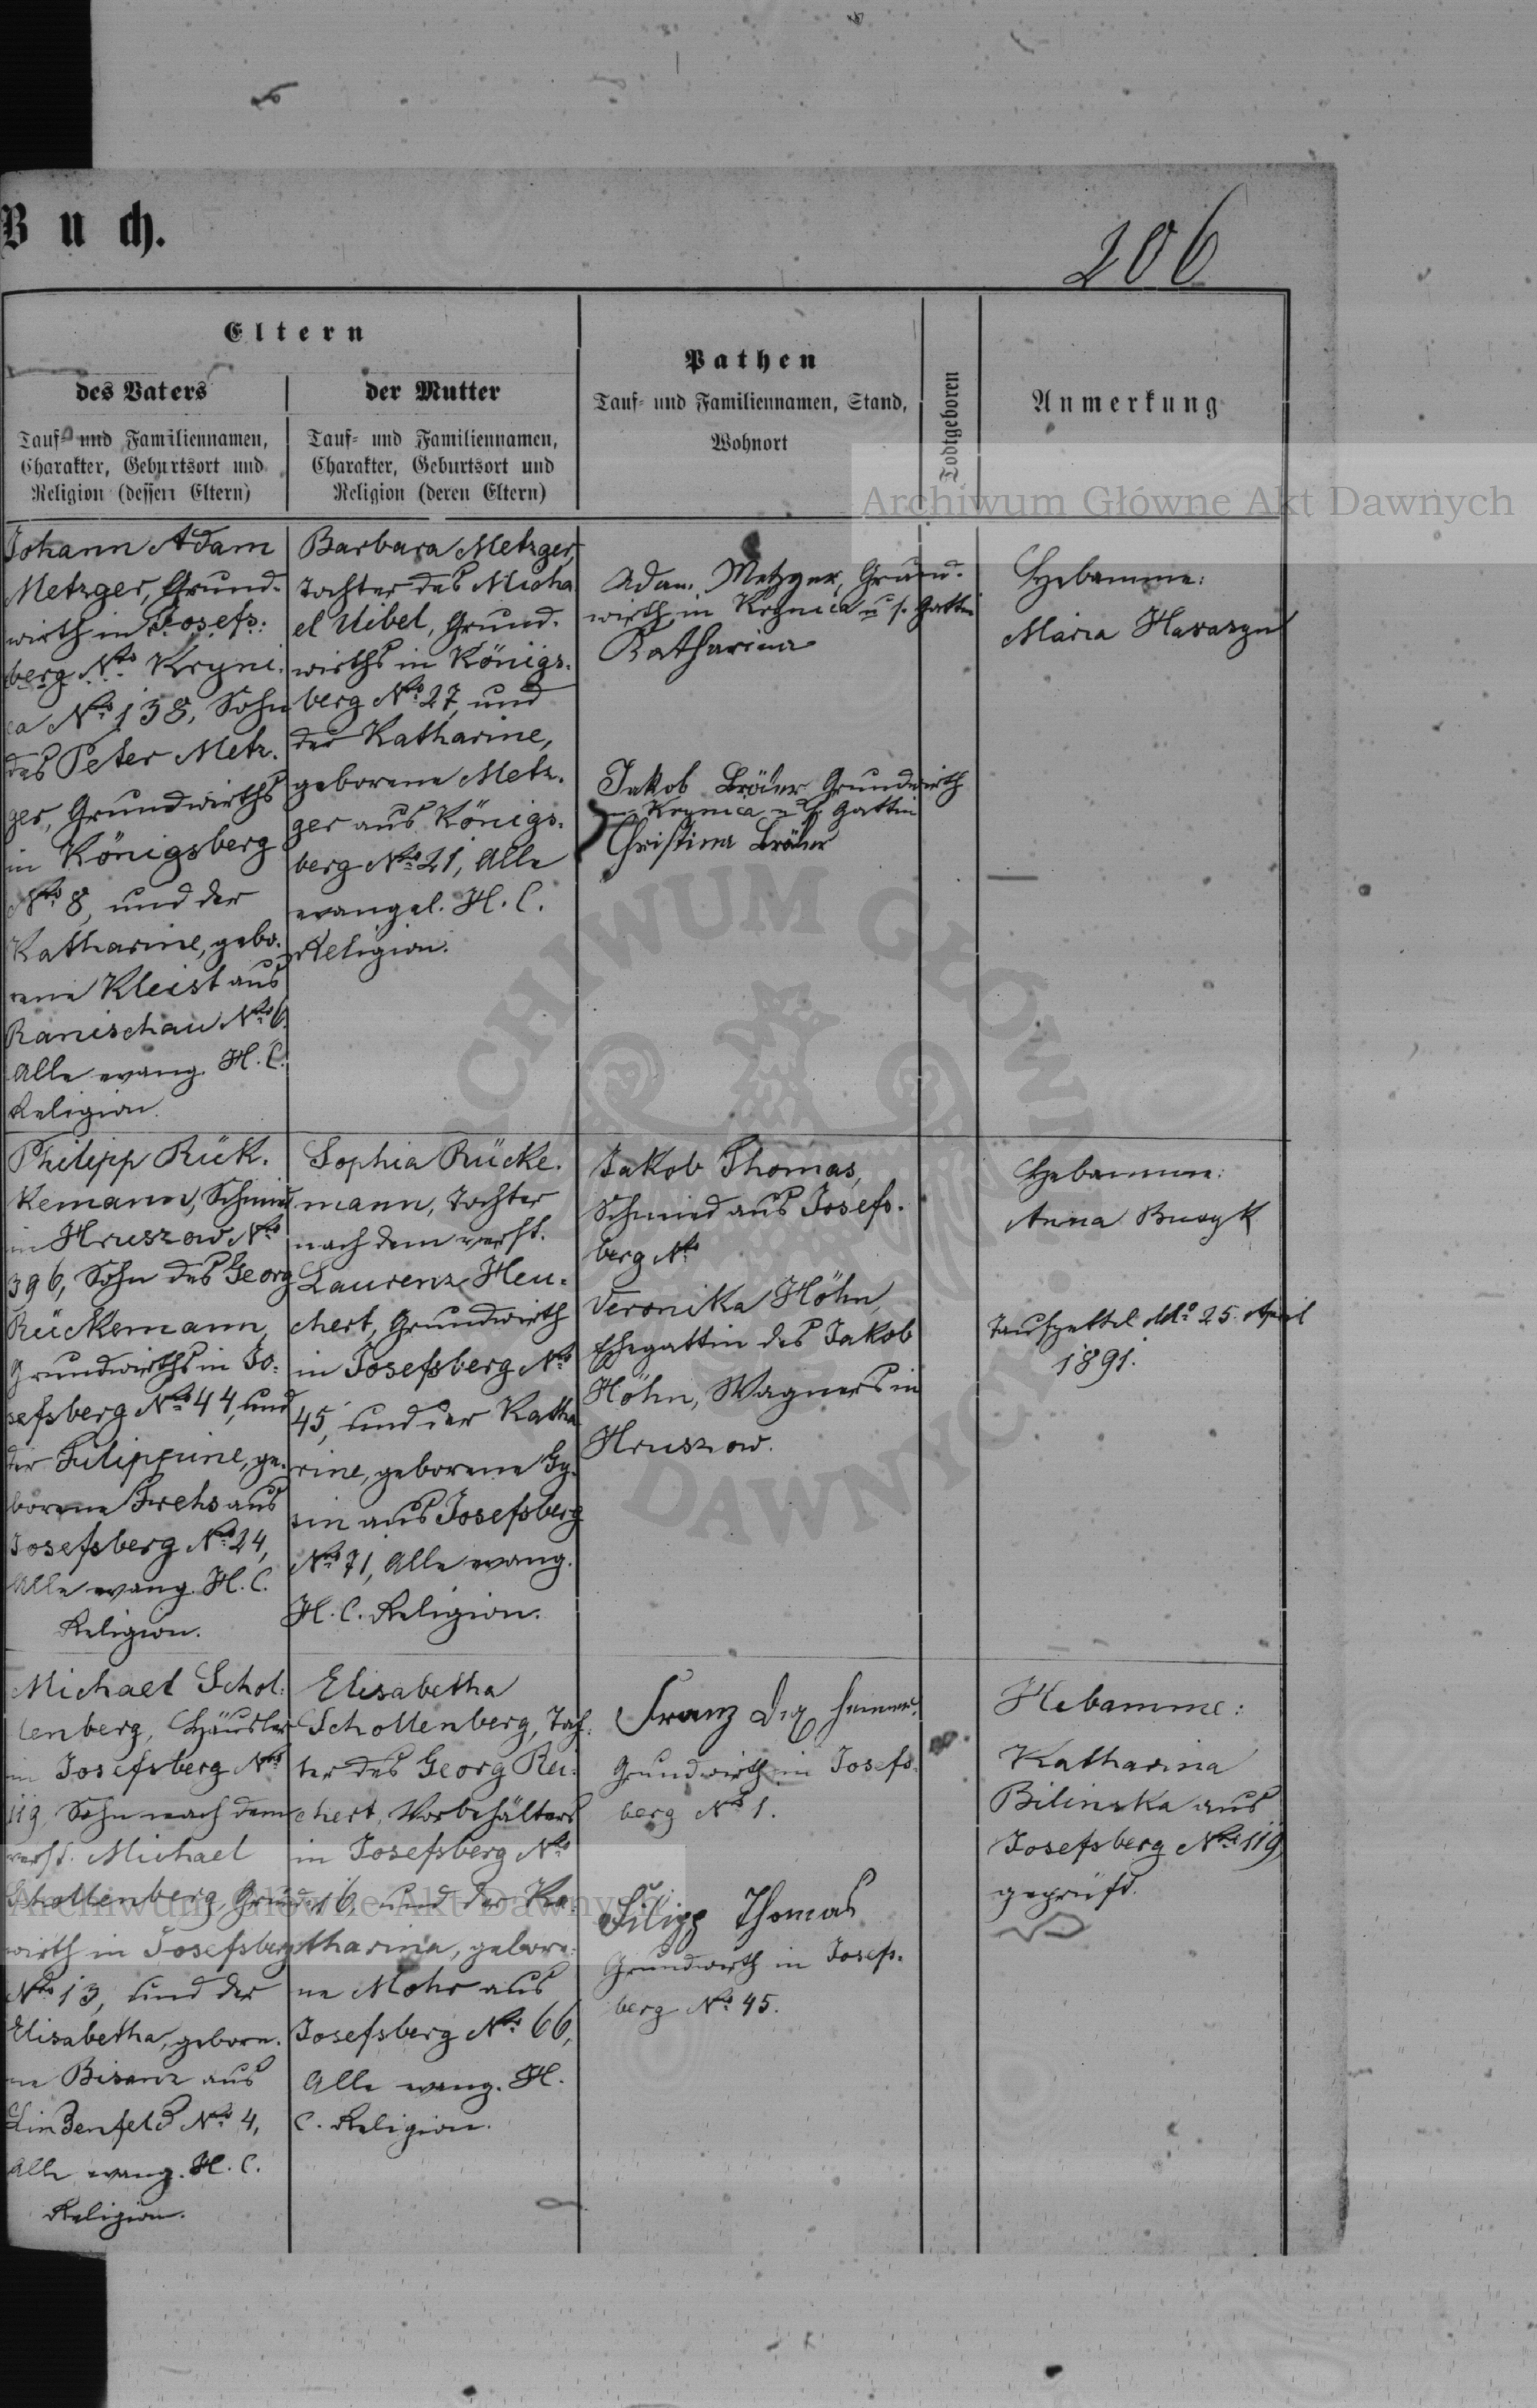 Buch.
206
Eltern
des Vaters
Tauf- und Familiennamen,
Charakter, Geburtsort und
Religion (dessen Eltern)
der Mutter
Tauf- und Familiennamen,
Charakter, Geburtsort und
Religion (deren Eltern)
Pathen
Tauf- und Familiennamen, Stand,
Wohnort
Todtgeboren
Anmerkung
Archiwum Główne Akt Dawnych
Johann Adam
Metzger, Grund-
wirth in Josefs-
berg No Kryni-
ca No 138, Sohn
des Peter Metz-
ger, Grundwirths
in Königsberg
No 8, und der
Katharine, gebo-
rene Kleist aus
Ranischau No 6.
Alle evang. H. C.
Religion.
Barbara Metzger,
Tochter des Micha
el Uibel, Grund-
wirths in Königs-
berg No 27, und
der Katharine,
geborene Metz-
ger aus Königs-
berg No 21, Alle
evangel. H. C.
Religion.
Adam Metzger, Grund-
wirth in Krynica u s. Gattin
Katharina
Jakob Bräuer Grundwirth
in Krynica u s. Gattin
Christina Bräuer
Hebamme:
Maria Havaszyn
Philipp Rük-
kemann, Schmied
in Hruszow No
396, Sohn des Georg
Rückemann,
Grundwirths in Jo-
sefsberg No 44, und
der Filippine, ge-
borene Frehs aus
Josefsberg No 24,
Alle evang. H. C.
Religion.
Sophia Rücke-
mann, Tochter
nach dem verst.
Laurenz Heu-
chert, Grundwirth
in Josefsberg No
45, und der Katha
rine, geborene Gy-
sin aus Josefsberg
No 71, Alle evang.
H. C. Religion.
Jakob Thomas,
Schmied aus Josefs-
berg No
Veronika Höhn,
Ehegattin des Jakob
Höhn, Wagners in
Hruszow.
Hebamme:
Anna Busyk
Taufzettel ddo 25. April
1891.
Michael Schol-
lenberg, Häusler
in Josefsberg No
119, Sohn nach dem
verst. Michael
Schollenberg, Grund-
wirth in Josefsberg
No 13, und der
Elisabetha, gebore-
ne Bisanz aus
Lindenfeld No 4,
Alle evang. H. C.
Religion.
Elisabetha
Schollenberg, Toch-
ter des Georg Rei-
chert, Vorbehälters
in Josefsberg No
16, und der Ka-
tharina, gebore-
ne Mohr aus
Josefsberg No 66,
Alle evang. H.
C. Religion.
Franz
Grundwirth in Josefs-
berg No 1.
Filipp Thomas
Grundwirth in Josefs-
berg No 45.
Hebamme:
Katharina
Bilinska aus
Josefsberg No 119
geprüft.
Archiwum Główne Akt Dawnych
ARCHIWUM GŁÓWNE AKT DAWNYCH